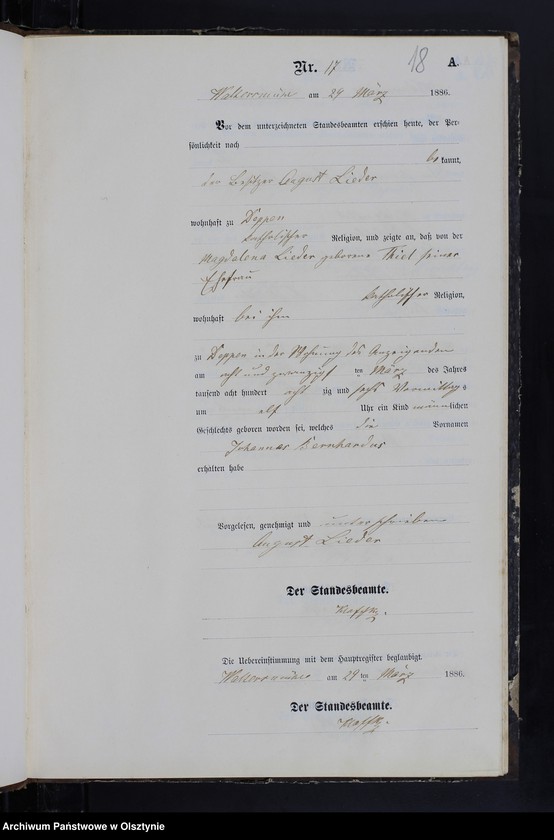 18
Nr. 17 A.
am 29 März 1886.
Vor dem unterzeichneten Standesbeamten erschien heute, der Per-
sönlichkeit nach
be kannt,
der Besitzer August Lieder
wohnhaft zu Deppen
katholischer Religion, und zeigte an, daß von der
Magdalena Lieder geborene Thiel seiner
Ehefrau
katholischer Religion,
wohnhaft bei ihm
zu Deppen in der Wohnung des Anzeigenden
am acht und zwanzigst ten März des Jahres
tausend acht hundert acht zig und sechs Vormittags
um elf Uhr ein Kind männlichen
Geschlechts geboren worden sei, welches die Vornamen
Johannes Bernhardus
erhalten habe
Vorgelesen, genehmigt und unterschrieben
August Lieder
Der Standesbeamte.
Die Uebereinstimmung mit dem Hauptregister beglaubigt.
am 29 ten März 1886.
Der Standesbeamte.
Archiwum Państwowe w Olsztynie